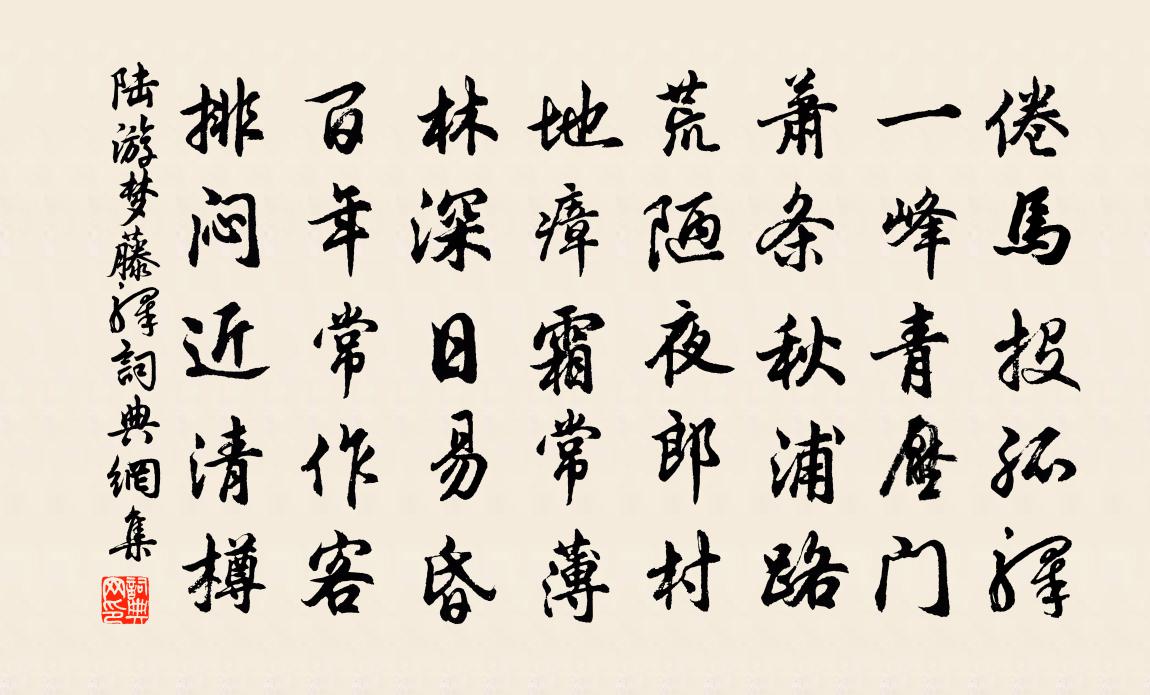 倦馬投孤驛
一峰青壓门
蕭条秋浦路
荒陋夜郎村
地瘴霜常薄
林深日易昏
百年常作客
排闷近清樽
陆游梦藤驛詞典網集
詞典网印